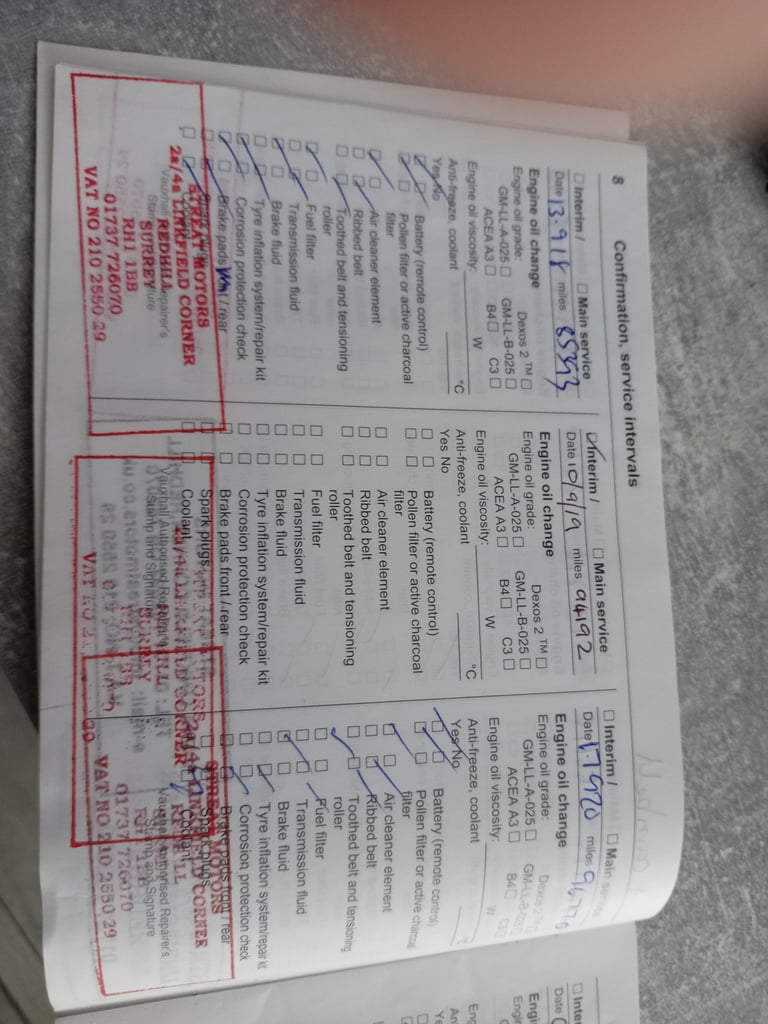 8 Confirmation, service intervals
☐ Interim / ☐ Main service
Date 13.9.18 miles 85393
Engine oil change
Engine oil grade: Dexos 2 ™ ☐
GM-LL-A-025 ☐ GM-LL-B-025 ☐
ACEA A3 ☐ B4 ☐ C3 ☐
Engine oil viscosity: W
Anti-freeze, coolant °C
Yes No
Battery (remote control)
Pollen filter or active charcoal
filter
Air cleaner element
Ribbed belt
Toothed belt and tensioning
roller
Fuel filter
Transmission fluid
Brake fluid
Tyre inflation system/repair kit
Corrosion protection check
Brake pads front / rear
Spark plugs
Coolant
Vauxhall Repairer's
Stamp Signature
STREET MOTORS
2a/4a LINKFIELD CORNER
REDHILL
SURREY
RH1 1BB
01737 726070
VAT NO 210 2550 29
☑ Interim / ☐ Main service
Date 10/9/19 miles 94192
Engine oil change
Engine oil grade: Dexos 2 ™ ☐
GM-LL-A-025 ☐ GM-LL-B-025 ☐
ACEA A3 ☐ B4 ☐ C3 ☐
Engine oil viscosity: W
Anti-freeze, coolant °C
Yes No
☐ ☐ Battery (remote control)
☐ ☐ Pollen filter or active charcoal
filter
☐ ☐ Air cleaner element
☐ ☐ Ribbed belt
☐ ☐ Toothed belt and tensioning
roller
☐ ☐ Fuel filter
☐ ☐ Transmission fluid
☐ ☐ Brake fluid
☐ ☐ Tyre inflation system/repair kit
☐ ☐ Corrosion protection check
☐ ☐ Brake pads front / rear
☐ ☐ Spark plugs
☐ ☐ Coolant
Vauxhall Authorised Repairer's
Stamp and Signature
MOTORS
LINKFIELD CORNER
SURREY
VAT NO
☐ Interim / ☐ Main
Date 17 9 20 miles
Engine oil change
Engine oil grade: Dexos 2
GM-LL-A-025 ☐ GM-LL-B-025
ACEA A3 ☐ B4 ☐
Engine oil viscosity: W
Anti-freeze, coolant
Yes No
Battery (remote control)
Pollen filter or active charcoal
filter
Air cleaner element
Ribbed belt
Toothed belt and tensioning
roller
Fuel filter
Transmission fluid
Brake fluid
Tyre inflation system/repair kit
Corrosion protection check
Brake pads front / rear
Spark plugs
Coolant
Vauxhall Authorised Repairer's
Stamp and Signature
MOTORS
CORNER
01737 726070
VAT NO 210 2550 29